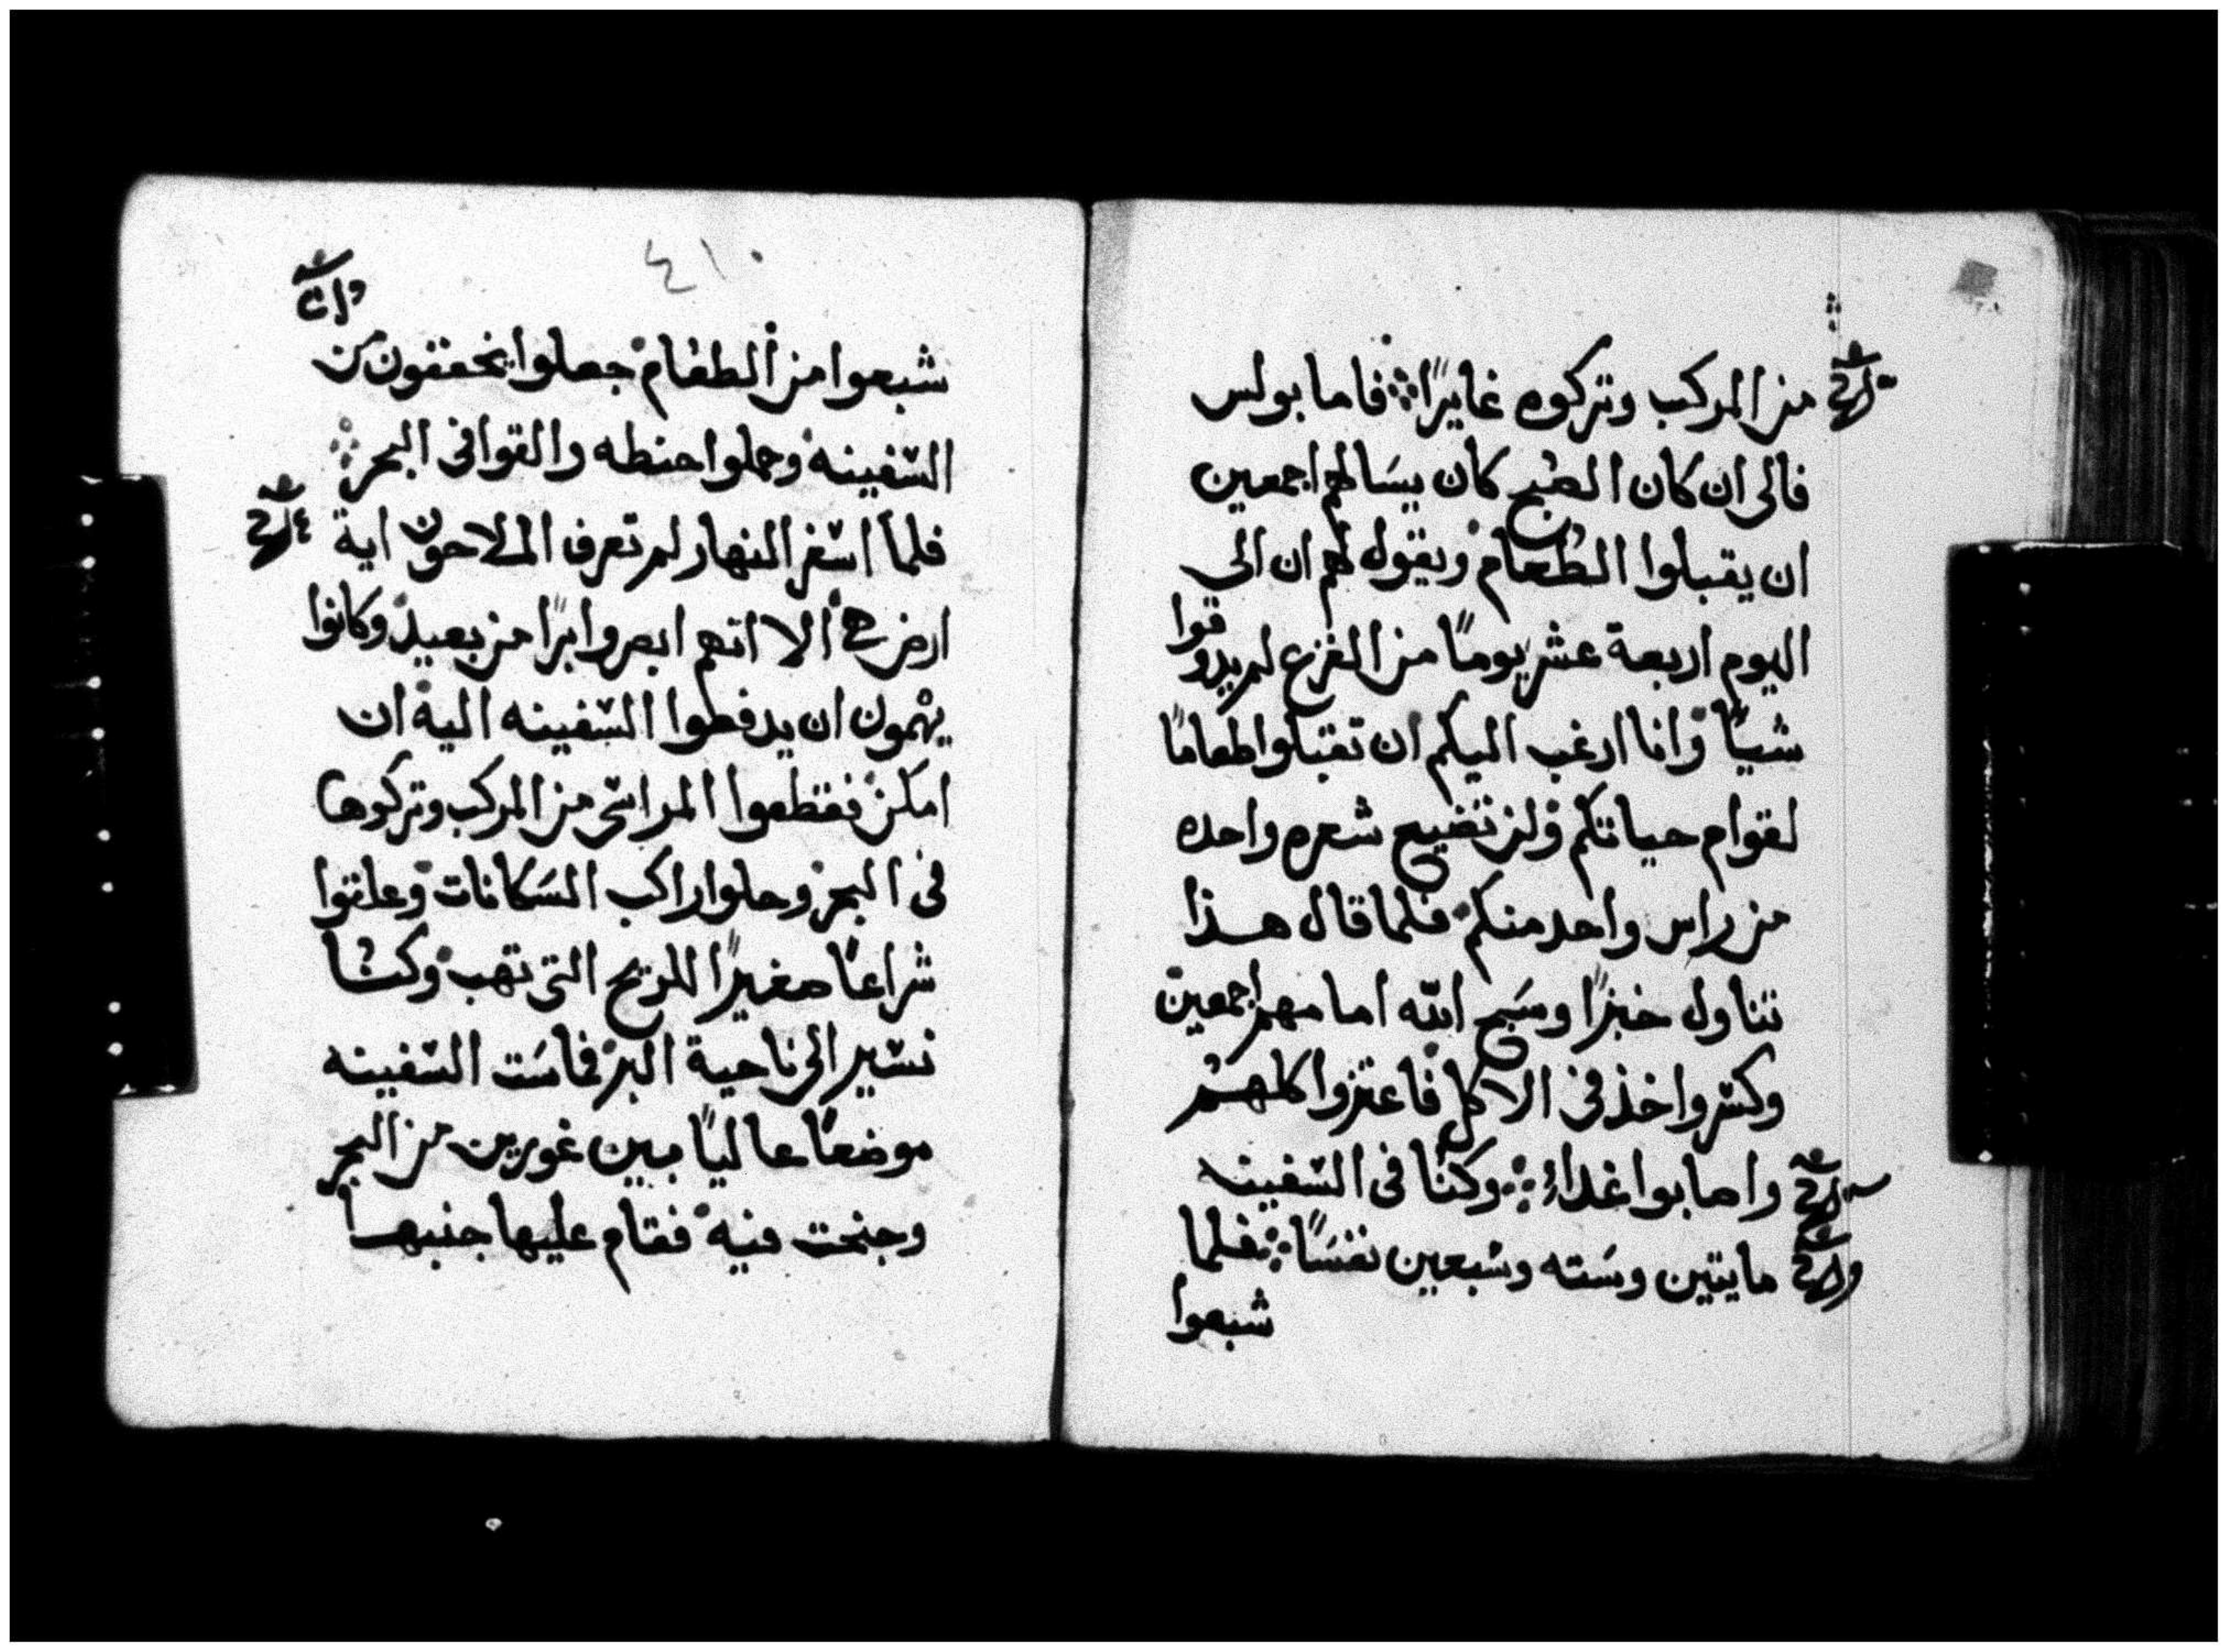 من المركب وتركوه غايرًا ؞ فاما بولس
فالى ان كان الصبح كان يسالهم اجمعين
ان يقبلوا الطعام ويقول لهم ان الى
اليوم اربعة عشر يومًا من الفزع لم يدوقوا
شييًا وانا ارغب اليكم ان تقبلوا طعامًا
لقوام حياتكم ولن تضيع شعره واحده
من راس واحد منكم فلما قال هذا
تناول خبزًا وسبح الله امامهم اجمعين
وكسر واخذ في الاكل فاعتزوا كلهم
واصابوا غداءً ؞ وكنا في السفينه
مايتين وسته وسبعين نفسًا ؞ فلما
شبعوا
٤١٠
شبعوا من الطعام جعلوا يخففون من
السفينه وحملوا حنطه والقوا في البحر ؞
فلما اسفر النهار لم تعرف الملاحون اية
ارض هي الا انهم ابصروا برًا من بعيد وكانوا
يهمون ان يدفطوا السفينه اليه ان
امكن فقطعوا المراسي من المركب وتركوها
في البحر وحلوا راكب السكانات وعلقوا
شراعًا صغيرًا للريح التي تهب وكنا
نسير الى ناحية البر فماست السفينه
موضعًا عاليًا بين غورين من البحر
وجنحت فيه فقام عليها جنبها